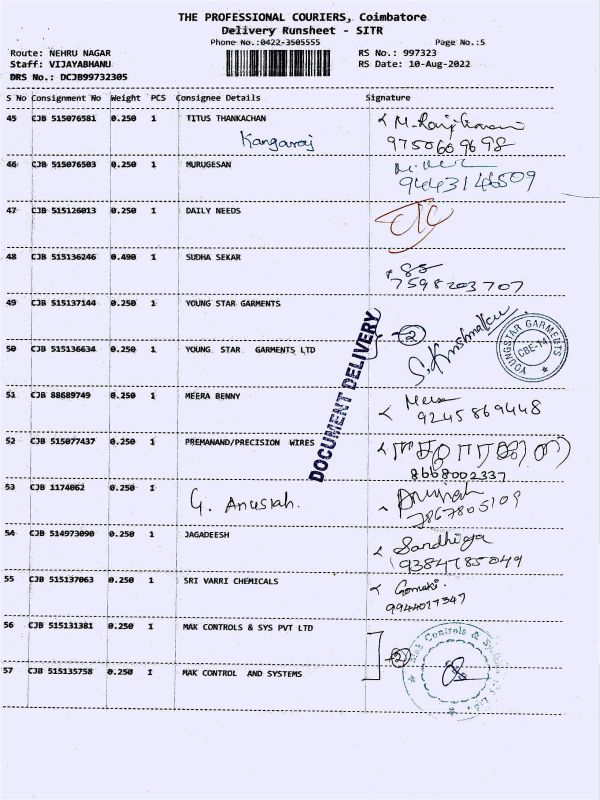 THE PROFESSIONAL COURIERS, Coimbatore
Delivery Runsheet - SITR
Phone No.:0422-3505555
Page No.:5
Route: NEHRU NAGAR
RS No.: 997323
Staff: VIJAYABHANU
RS Date: 10-Aug-2022
DRS No.: DCJB99732305
S No Consignment No Weight PCS Consignee Details Signature
45 CJB 515076581 0.250 1 TITUS THANKACHAN
Kangaraj
9750669698
46 CJB 515076503 0.250 1 MURUGESAN
9443146509
47 CJB 515126013 0.250 1 DAILY NEEDS
48 CJB 515136246 0.490 1 SUDHA SEKAR
7598203707
49 CJB 515137144 0.250 1 YOUNG STAR GARMENTS
2
YOUNGSTAR GARMENTS
CBE-14
50 CJB 515136634 0.250 1 YOUNG STAR GARMENTS LTD
DOCUMENT DELIVERY
51 CJB 88689749 0.250 1 MEERA BENNY
Meera
9245869448
52 CJB 515077437 0.250 1 PREMANAND/PRECISION WIRES
8668002337
53 CJB 1174062 0.250 1 G. Anusiah.
7867805109
54 CJB 514973090 0.250 1 JAGADEESH
Sandhiya
9384785049
55 CJB 515137063 0.250 1 SRI VARRI CHEMICALS
Gomathi.
9944017347
56 CJB 515131381 0.250 1 MAK CONTROLS & SYS PVT LTD
2
Mak Controls &
57 CJB 515135758 0.250 1 MAK CONTROL AND SYSTEMS